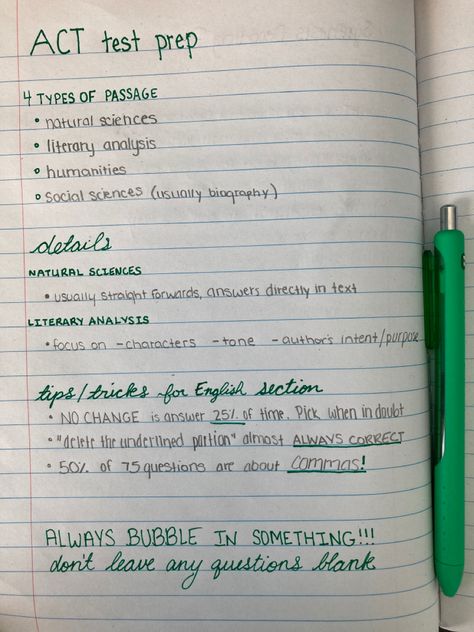 ACT test prep
4 TYPES OF PASSAGE
• natural sciences
• literary analysis
• humanities
• social sciences (usually biography)
details
NATURAL SCIENCES
• usually straight forwards, answers directly in text
LITERARY ANALYSIS
• focus on - characters - tone - author's intent/purpose
tips/tricks for English section
• NO CHANGE is answer 25% of time. Pick when in doubt
• "delete the underlined portion" almost ALWAYS CORRECT
• 50% of 75 questions are about commas!
ALWAYS BUBBLE IN SOMETHING!!!
don't leave any questions blank